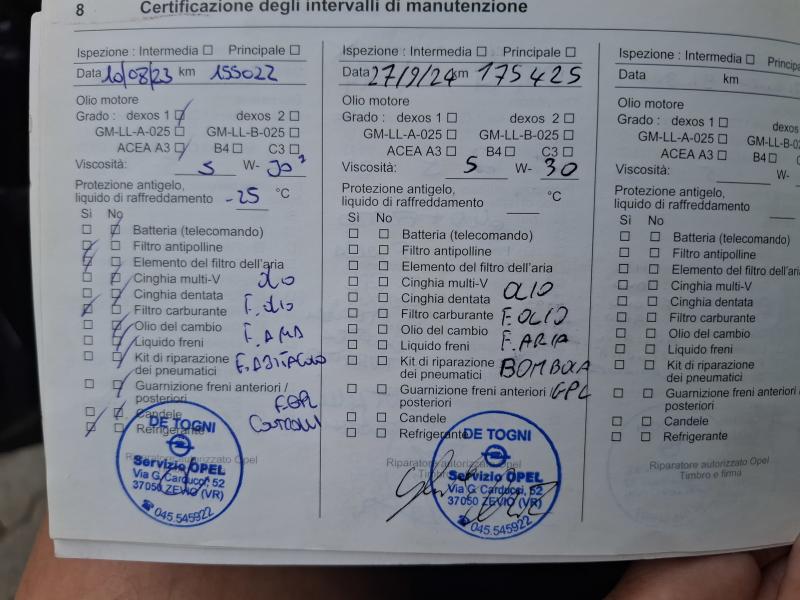 8 Certificazione degli intervalli di manutenzione
Ispezione : Intermedia ☐ Principale ☐
Data 10/08/23 km 155022
Olio motore
Grado : dexos 1 ☐ dexos 2 ☐
GM-LL-A-025 ☐ GM-LL-B-025 ☐
ACEA A3 ☐ B4 ☐ C3 ☐
Viscosità: 5 W- 30
Protezione antigelo,
liquido di raffreddamento -25 °C
Sì No
Batteria (telecomando)
Filtro antipolline
Elemento del filtro dell'aria
Cinghia multi-V olio
Cinghia dentata
Filtro carburante F. olio
Olio del cambio
Liquido freni F. ARIA
Kit di riparazione F. ABITACOLO
dei pneumatici
Guarnizione freni anteriori /
posteriori
Candele
Refrigerante
Riparatore autorizzato Opel
DE TOGNI
Servizio OPEL
Via G. Carducci, 52
37050 ZEVIO (VR)
☎ 045.545922
Ispezione : Intermedia ☐ Principale ☐
Data 27/9/24 km 175425
Olio motore
Grado : dexos 1 ☐ dexos 2 ☐
GM-LL-A-025 ☐ GM-LL-B-025 ☐
ACEA A3 ☐ B4 ☐ C3 ☐
Viscosità: 5 W- 30
Protezione antigelo,
liquido di raffreddamento °C
Sì No
Batteria (telecomando)
Filtro antipolline
Elemento del filtro dell'aria
Cinghia multi-V
Cinghia dentata OLIO
Filtro carburante F. OLIO
Olio del cambio
Liquido freni F. ARIA
Kit di riparazione BOMBOLA
dei pneumatici
Guarnizione freni anteriori / GPL
posteriori
Candele
Refrigerante
Riparatore autorizzato Opel
Timbro e firma
DE TOGNI
Servizio OPEL
Via G. Carducci, 52
37050 ZEVIO (VR)
☎ 045.545922
Ispezione : Intermedia ☐
Data km
Olio motore
Grado : dexos 1 ☐
GM-LL-A-025 ☐ GM-LL-B-025
ACEA A3 ☐ B4 ☐
Viscosità: W-
Protezione antigelo,
liquido di raffreddamento
Sì No
Batteria (telecomando)
Filtro antipolline
Elemento del filtro dell'aria
Cinghia multi-V
Cinghia dentata
Filtro carburante
Olio del cambio
Liquido freni
Kit di riparazione
dei pneumatici
Guarnizione freni anteriori
posteriori
Candele
Refrigerante
Riparatore autorizzato Opel
Timbro e firma